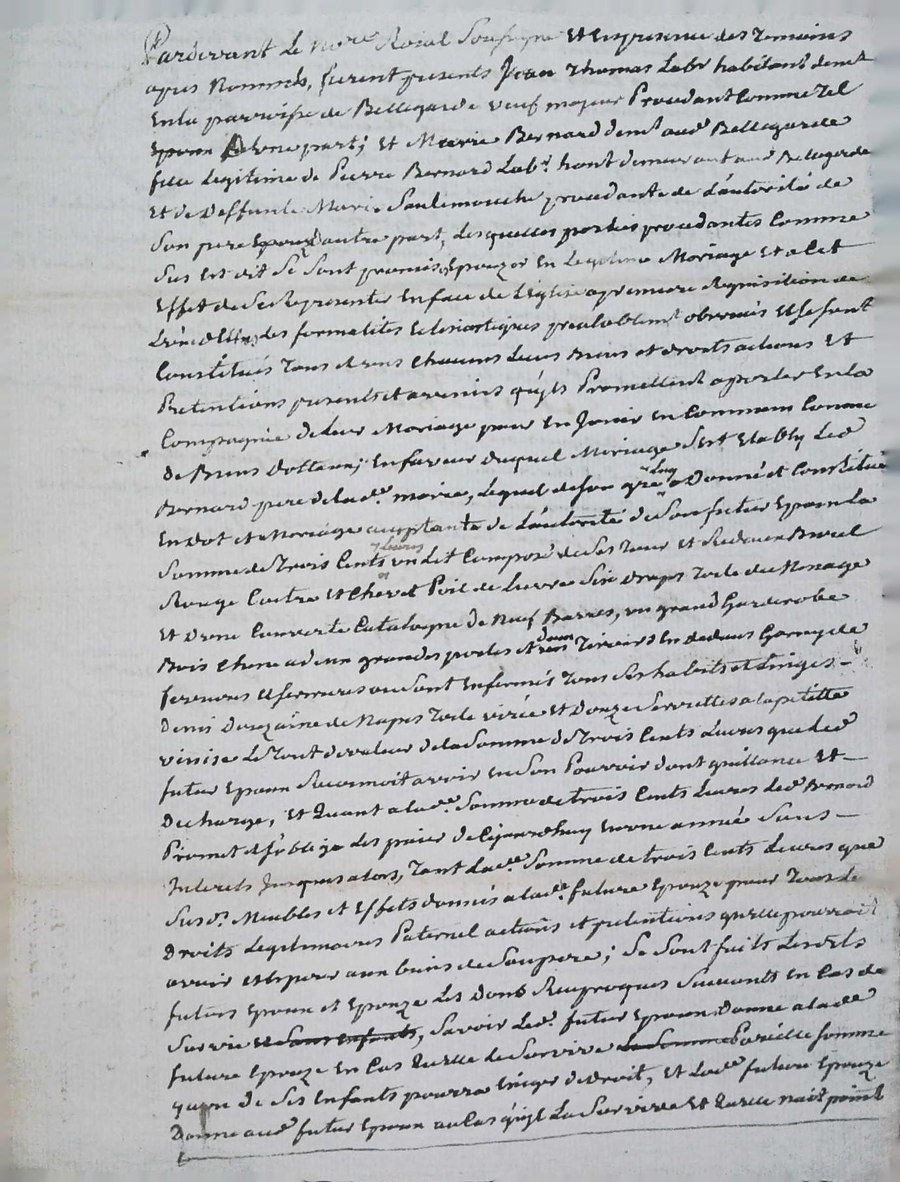 Pardevant Le Nore Roial Soussigne Et En presence des Temoins
apres Nommés, furent presents Jean Thomas Labr habitant demt
En la parroisse de Bellegarde veuf majeur Procedant Comme Tel
Epoux D'Une part; Et Marie Bernard demt aud Bellegarde
fille Legitime de Pierre Bernard Labr. hant demeurant aud Bellegarde
Et de Deffunte Marie Soulemouche procedante de L'autorité de
Son pere Epouze d'autre part, Lesquelles parties procedantes Comme
Sus est dit Se Sont promis Epouzer En Legitime Mariage Et a Cet
Effet de Se Representer En face de L'Eglise a premiere Requisition de
L'un d'Eux, Les formalites Eclesiastiques prealablemt observées Et Se Sont
Constitués Tous Et uns Chacuns Leurs Biens et droits actions Et
Pretentions presents et avenirs qu'ils Promettent aporter En La
Compagnie de Leur Mariage pour En Jouir En Commun Comme
de Biens Dottaux; En faveur duquel Mariage S'est Etably Led
Bernard pere de lad. marie, Lequel de Son gré a Donné et Constitué
En Dot et Mariage acceptante de L'autorité de Son futur Epoux La
Somme de Trois Cents Livres un Lit Composé de Ses Tour Et Rideaux
Rouge Coitre Et Chevet Poil de Lievre Six draps Toile du Menage
Et D'une Couverte Catalogne de Neuf Barres, un grand Garderobe
Bois Chene a deux grandes portes et deux Tiroirs En dedans Garny de
ferrures Et serrures ou Sont Enfermés Tous Ses habits et Linges –
Demi Douzaine de Napes Toile virée Et Douze Serviettes a la petitte
venise Le Tout de valeur de la Somme de Trois Cents Livres que Led
futur Epoux Reconnoit avoir En Son Pouvoir dont quittance Et –
Decharge, Et Quant a lad. Somme de trois Cents Livres Led. Bernard
Promet Et s'oblige Les paier d'icy En une année Sans –
Interets Jusques alors, Tant Lad. Somme de trois Cents Livres que
Susd. Meubles et Effets donnés a lad. future Epouze pour Tous Ses
Droits Legitimaires Paternel actions et pretentions qu'elle pourroit
avoir Et Esperer aux biens de Son pere; Se Sont faits Lesdits
futurs Epoux et Epouze Les Dons Reciproques Suivants En Cas de
Survie Et Sans Enfants, Savoir Led. futur Epoux Donne a lad
future Epouze En Cas qu'elle Le Survive La Somme Pareille Somme
qu'un de Ses Enfants pourra Exiger de Droit, Et Lad. future Epouze
Donne aud. futur Epoux au Cas qu'il La Survive Et qu'elle n'ait point